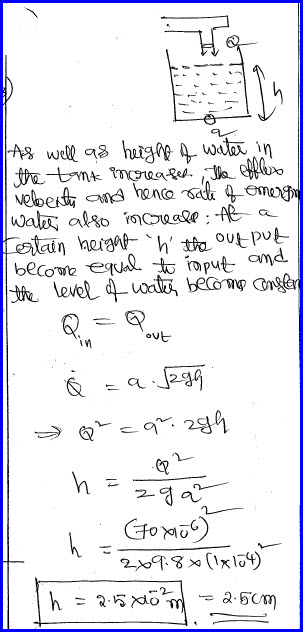 Q
h
a
As well as height of water in
the tank increases, the efflux
velocity and hence rate of emerging
water also increase: At a
certain height 'h' the output
become equal to input and
the level of water become constant
Q_in = Q_out
Q = a·√2gh
⇒ Q² = a²·2gh
h = Q² / 2ga²
h = (70×10⁻⁶)² / 2×9.8×(1×10⁻⁴)²
h = 2.5×10⁻² m = 2.5cm